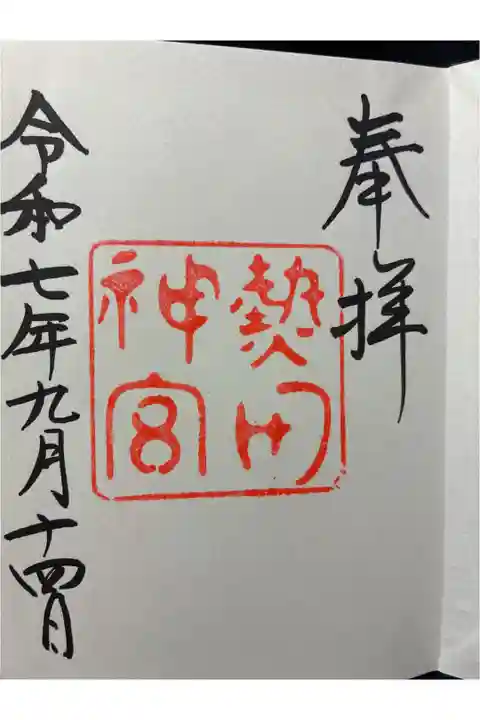 奉拝
熱田
神宮
令和七年九月十四日